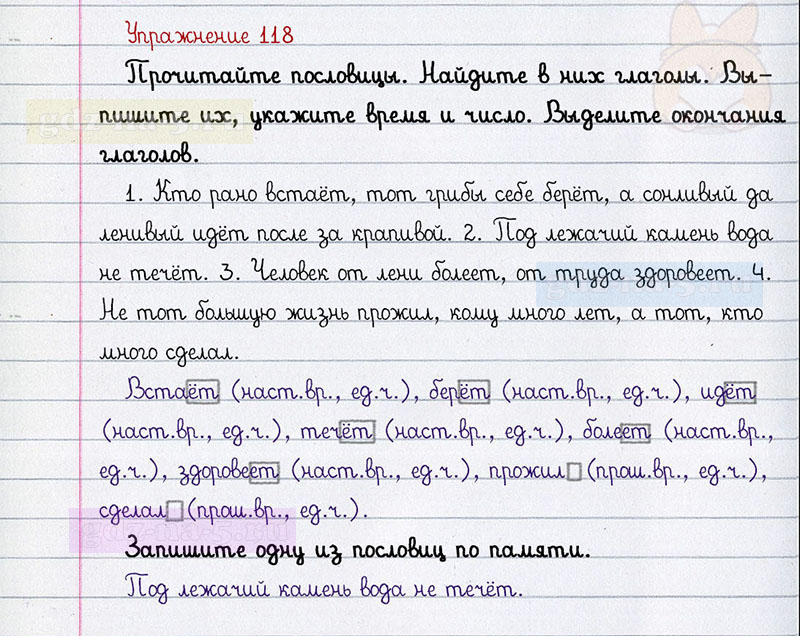 Упражнение 118
Прочитайте пословицы. Найдите в них глаголы. Вы-
пишите их, укажите время и число. Выделите окончания
глаголов.
1. Кто рано встаёт, тот грибы себе берёт, а сонливый да
ленивый идёт после за крапивой. 2. Под лежачий камень вода
не течёт. 3. Человек от лени болеет, от труда здоровеет. 4.
Не тот большую жизнь прожил, кому много лет, а тот, кто
много сделал.
Встаёт (наст.вр., ед.ч.), берёт (наст.вр., ед.ч.), идёт
(наст.вр., ед.ч.), течёт (наст.вр., ед.ч.), болеет (наст.вр.,
ед.ч.), здоровеет (наст.вр., ед.ч.), прожил (прош.вр., ед.ч.),
сделал (прош.вр., ед.ч.).
Запишите одну из пословиц по памяти.
Под лежачий камень вода не течёт.